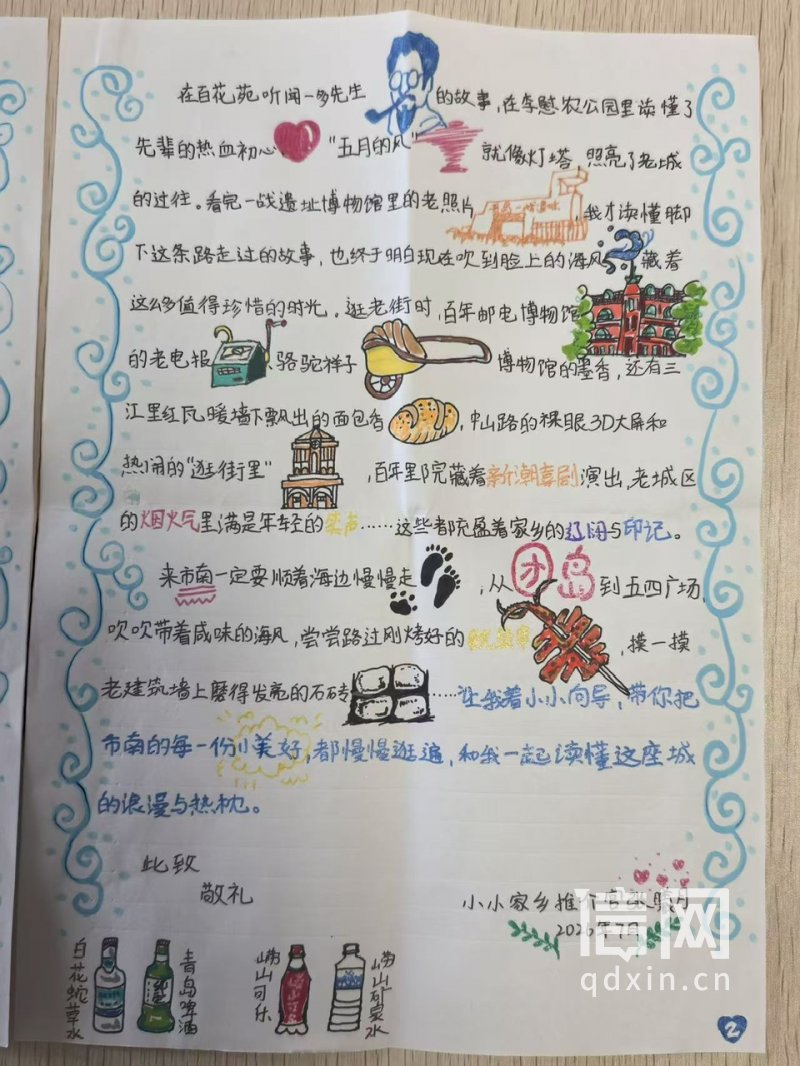 在百花苑听闻一多先生的故事,在李慰农公园里读懂了
先辈的热血初心 "五月的风" 就像灯塔,照亮了老城
的过往。看完一战遗址博物馆里的老照片,我才读懂脚
下这条路走过的故事,也终于明白现在吹到脸上的海风藏着
这么多值得珍惜的时光。逛老街时,百年邮电博物馆
的老电报、骆驼祥子博物馆的墨香,还有三
江里红瓦暖墙下飘出的面包香,中山路的裸眼3D大屏和
热闹的"逛街里",百年里院藏着新潮喜剧演出,老城区
的烟火气里满是年轻的笑声……这些都充盈着家乡的过往与印记。
来市南一定要顺着海边慢慢走,从团岛到五四广场,
吹吹带着咸味的海风,尝尝路过刚烤好的,摸一摸
老建筑墙上磨得发亮的石砖……让我着小小向导,带你把
市南的每一份小美好,都慢慢逛遍,和我一起读懂这座城
的浪漫与热忱。
此致
敬礼
小小家乡推介官
2026年7月
白花蛇草水
青岛啤酒
崂山可乐
崂山矿泉水
信网
qdxin.cn
2